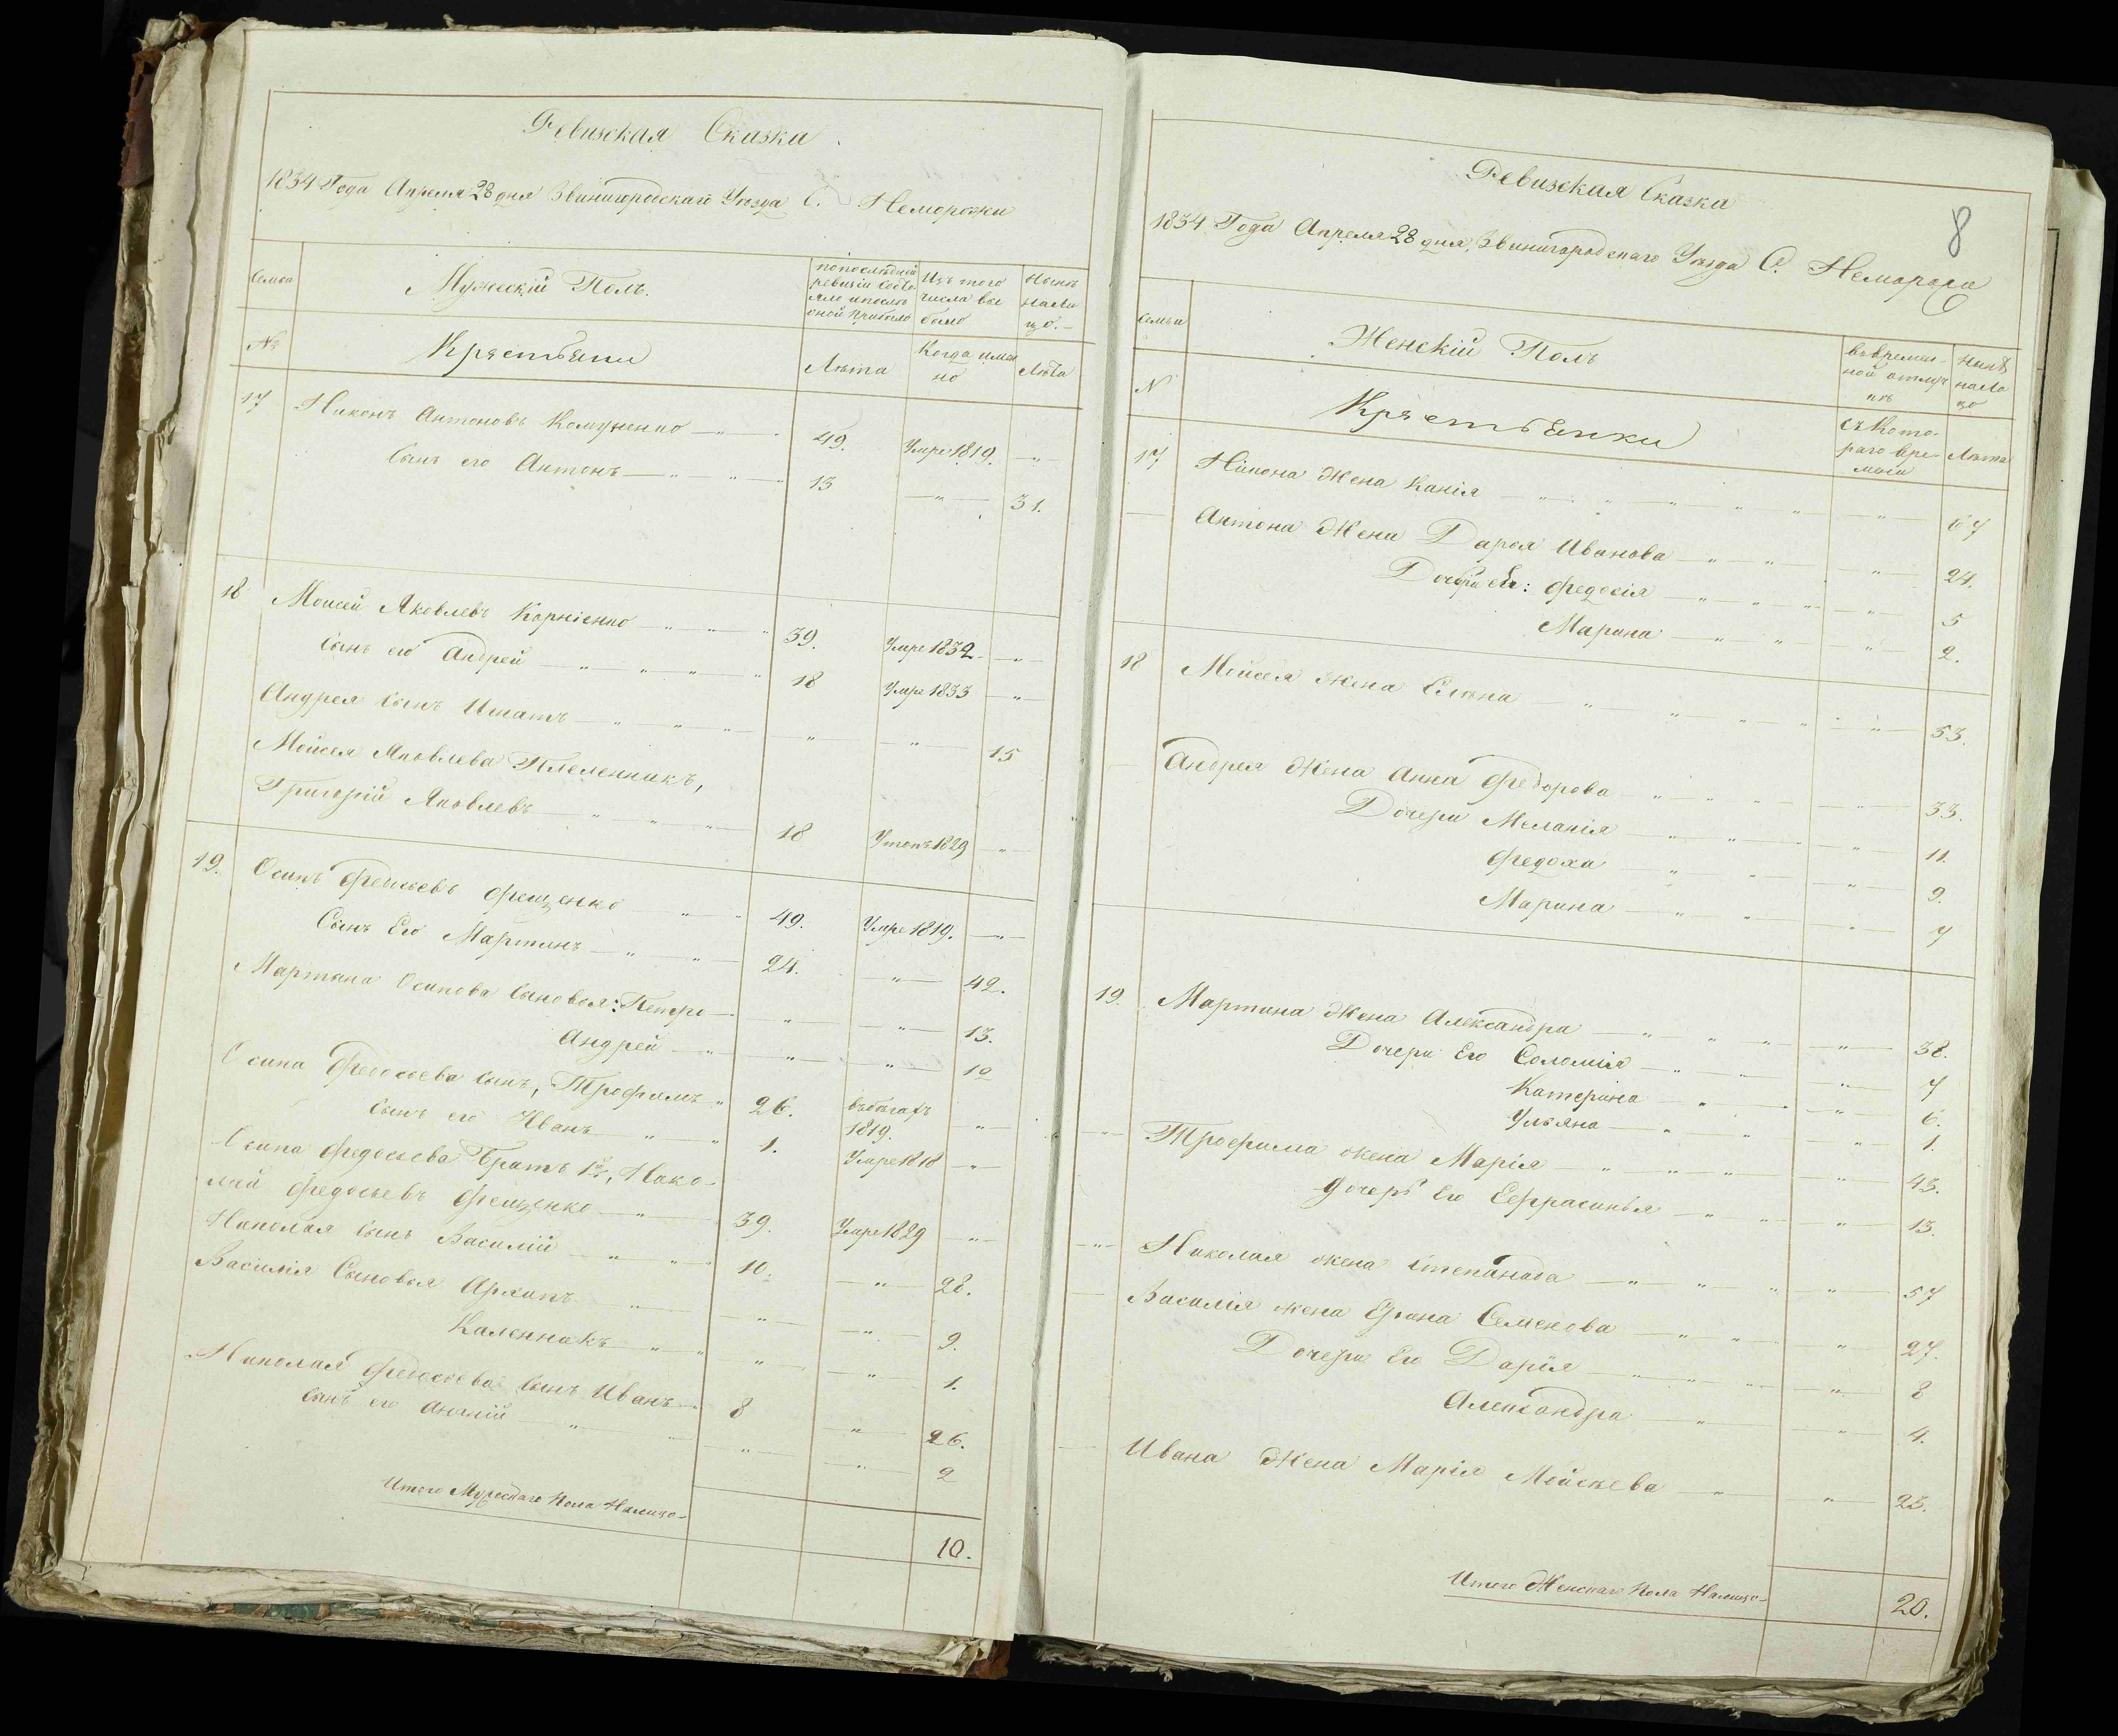 Ревизская Сказка
1834 Года Апреля 28 дня Звинигородскаго Уезда С. Неморожи
Семьи
Мужеский Полъ.
по последней ревизии состояло и после оной прибыло
Изъ того числа выбыло
Ныне налицо.
№
Крестьяне
Лета
Когда именно
Лета
17 Никонъ Антоновъ 49. Умре 1819. — " —
Сынъ его Антонъ — " — " — 13 — " — 31.
18 Моисей Яковлевъ Корніенко — " — " — " 39. Умре 1832. — " —
Сынъ его Андрей — " — " — " — " 18 Умре 1833 — " —
Андрея Сынъ Игнатъ — " — " — " — " — 15
Мойсея Яковлева Племенникъ,
Григорій Яковлевъ — " — " — 18 Утопъ 1829 — " —
19. Осипъ Федосьевъ Фещенко — " — " 49. Умре 1819. — " —
Сынъ Его Мартинъ — " — " — 24. — " — 42.
Мартина Осипова Сыновья: Петро — " — " — 13.
Андрей — " — " — " — 10
Осипа Федосьева Сынъ, Трофимъ " 26. въ бегахъ 1819. — " —
Сынъ его Иванъ — " — " 1. Умре 1818 — " —
Осипа Федосьева Братъ 1й, Нико-
лай Федосьевъ Фещенко — " — 39. Умре 1829 — " —
Николая Сынъ Василій — " — " — 10. — " — 28.
Василія Сыновья Архипъ — " — " — " — 9.
Каленникъ — " — " — " — " — 1.
Николая Федосьева Сынъ Иванъ — 8 — " — 26.
Сынъ его — " — " — " — " — 2
Итого Мужескаго Пола Налицо — 10.
Ревизская Сказка
8
1834 Года Апреля 28 дня, Звинигородскаго Уезда С.
Семьи
Женскій Полъ
въ временной отлучке
Ныне налицо
N
Крестьянки
съ котораго времени
Лета
17 Нікона Жена — " — " — " — " — 67
Антона Жена Дарья Иванова — " — " — " — 24.
Дочери Его: Федосія — " — " — " — 5
Марина — " — " — " — 2.
18 Мойсея жена Елена — " — " — " — " — " — 53.
Андрея Жена Анна Федорова — " — " — " — " — 33.
Дочери Меланія — " — " — " — 11.
Федоха — " — " — " — 9.
Марина — " — " — " — 7
19. Мартина Жена Александра — " — " — " — " — 38.
Дочери Его Соломія — " — " — " — 7
Катерина — " — " — 6.
Ульяна — " — " — " — 1.
Трофима жена Марія — " — " — " — " — 43.
Дочерь Его Ефрасинья — " — " — " — 13.
Николая жена Степанида — " — " — " — " — 57
Василія жена Семенова — " — " — " — 27.
Дочери Его Дарія — " — " — " — " — 8
Александра — " — " — 4.
Ивана Жена Марія Мойсеева — " — " — 23.
Итого Женскаго Пола Налицо — 20.